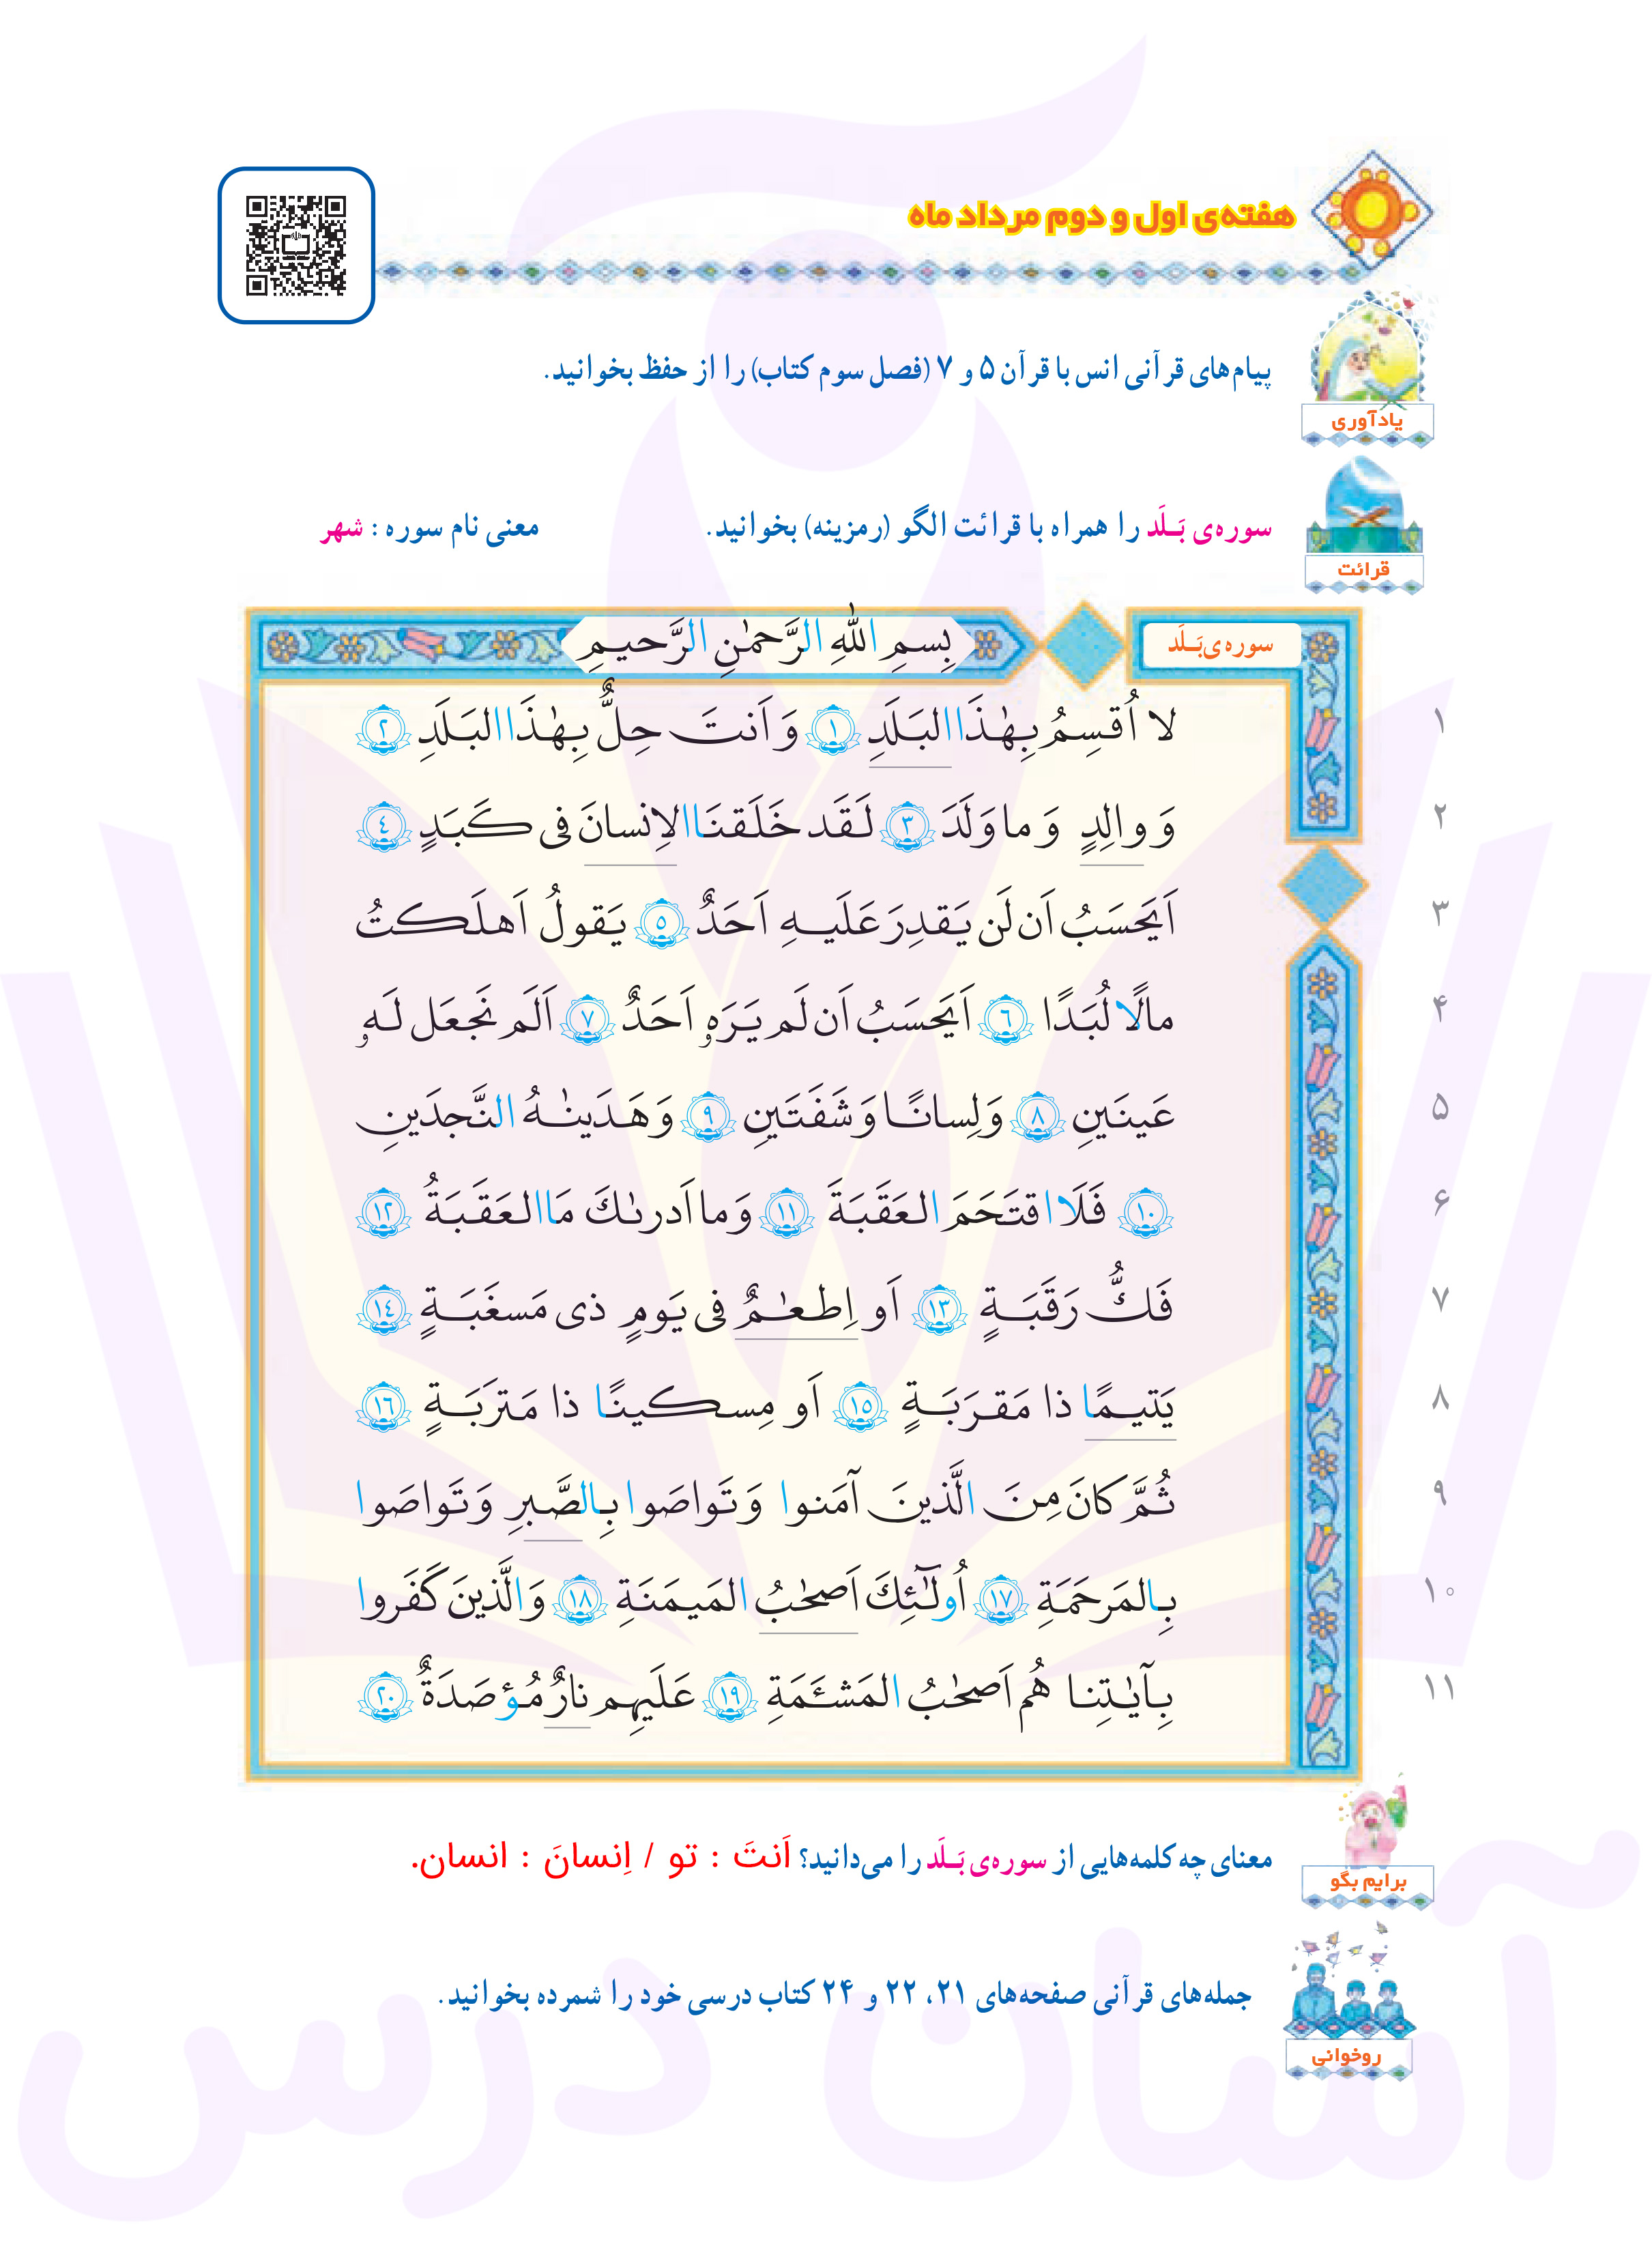 هفته‌ی اول و دوم مرداد ماه
پیام‌های قرآنی انس با قرآن ۵ و ۷ (فصل سوم کتاب) را از حفظ بخوانید.
یادآوری
سوره‌ی بَـلَد را همراه با قرائت الگو (رمزینه) بخوانید. معنی نام سوره : شهر
قرائت
سوره‌ی بَـلَد
بِسمِ اللّٰهِ الرَّحمٰنِ الرَّحیمِ
لا اُقسِمُ بِهٰذَا البَلَدِ ١ وَ اَنتَ حِلٌّ بِهٰذَا البَلَدِ ٢ ۱
وَ والِدٍ وَ ما وَلَدَ ٣ لَقَد خَلَقنَا الاِنسانَ فی کَبَدٍ ٤ ۲
اَیَحسَبُ اَن لَن یَقدِرَ عَلَیهِ اَحَدٌ ٥ یَقولُ اَهلَکتُ ۳
مالًا لُبَدًا ٦ اَیَحسَبُ اَن لَم یَرَهٗ اَحَدٌ ٧ اَلَم نَجعَل لَهٗ ۴
عَینَینِ ٨ وَ لِسانًا وَ شَفَتَینِ ٩ وَ هَدَینٰهُ النَّجدَینِ ۵
١٠ فَلَا اقتَحَمَ العَقَبَةَ ١١ وَ ما اَدرىٰكَ مَا العَقَبَةُ ١٢ ۶
فَكُّ رَقَبَةٍ ١٣ اَو اِطعٰمٌ فی یَومٍ ذی مَسغَبَةٍ ١٤ ۷
یَتیمًا ذا مَقرَبَةٍ ١٥ اَو مِسکینًا ذا مَترَبَةٍ ١٦ ۸
ثُمَّ کانَ مِنَ الَّذینَ آمَنوا وَ تَواصَوا بِالصَّبرِ وَ تَواصَوا ۹
بِالمَرحَمَةِ ١٧ اُولٰٓئِكَ اَصحٰبُ المَیمَنَةِ ١٨ وَ الَّذینَ کَفَروا ۱۰
بِآیٰتِنا هُم اَصحٰبُ المَشئَمَةِ ١٩ عَلَیهِم نارٌ مُؤصَدَةٌ ٢٠ ۱۱
معنای چه کلمه‌هایی از سوره‌ی بَـلَد را می‌دانید؟ اَنتَ : تو / اِنسانَ : انسان.
برایم بگو
جمله‌های قرآنی صفحه‌های ۲۱، ۲۲ و ۲۴ کتاب درسی خود را شمرده بخوانید.
روخوانی
آسان درس